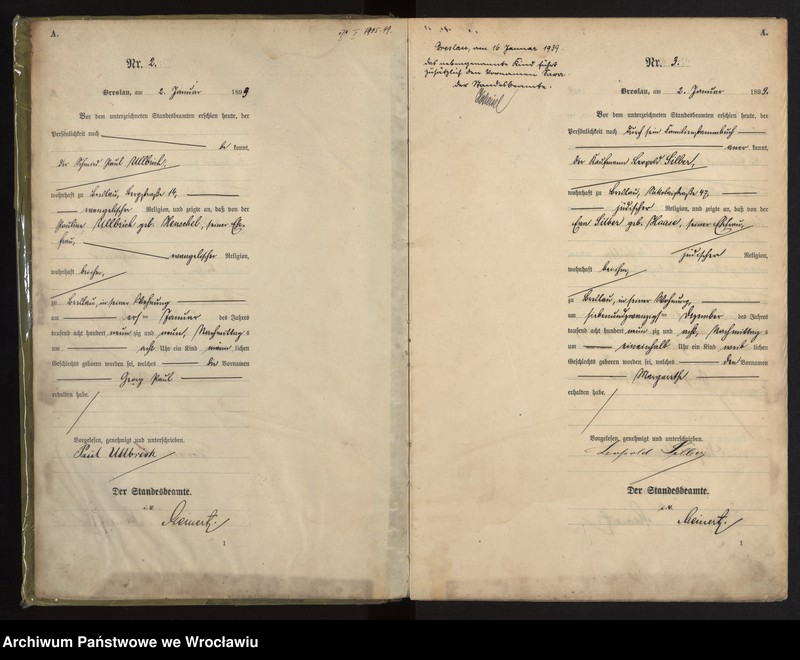 A.
Nr. 2.
Breslau, am 2. Januar 1899
Vor dem unterzeichneten Standesbeamten erschien heute, der
Persönlichkeit nach
be kannt,
der Schmied Paul Ullbrich,
wohnhaft zu Breslau, Bergstraße 14,
evangelischer Religion, und zeigte an, daß von der
Pauline Ullbrich geb. Henschel, seiner Ehe-
frau,
evangelischer Religion,
wohnhaft bei ihm,
zu Breslau, in seiner Wohnung
am ersten Januar des Jahres
tausend acht hundert neun zig und neun, Nachmittags
um acht Uhr ein Kind männ lichen
Geschlechts geboren worden sei, welches die Vornamen
Georg Paul
erhalten habe.
Vorgelesen, genehmigt und unterschrieben.
Paul Ullbrich
Der Standesbeamte.
i. V.
Meinertz.
1
Breslau, am 16 Januar 1939.
Das nebengenannte Kind führt
zusätzlich den Vornamen Sara.
Der Standesbeamte.
A.
Nr. 3.
Breslau, am 2. Januar 1899.
Vor dem unterzeichneten Standesbeamten erschien heute, der
Persönlichkeit nach durch sein Familienstammbuch
aner kannt,
der Kaufmann Leopold Silber,
wohnhaft zu Breslau, Nikolaistraße 47,
jüdischer Religion, und zeigte an, daß von der
Silber geb. Haase, seiner Ehefrau,
jüdischer Religion,
wohnhaft bei ihm,
zu Breslau, in seiner Wohnung,
am siebenundzwanzigsten Dezember des Jahres
tausend acht hundert neun zig und acht, Nachmittags
um eineinhalb Uhr ein Kind weib lichen
Geschlechts geboren worden sei, welches den Vornamen
Margareth
erhalten habe.
Vorgelesen, genehmigt und unterschrieben.
Leopold Silber
Der Standesbeamte.
i. V.
Meinertz.
1
Archiwum Państwowe we Wrocławiu